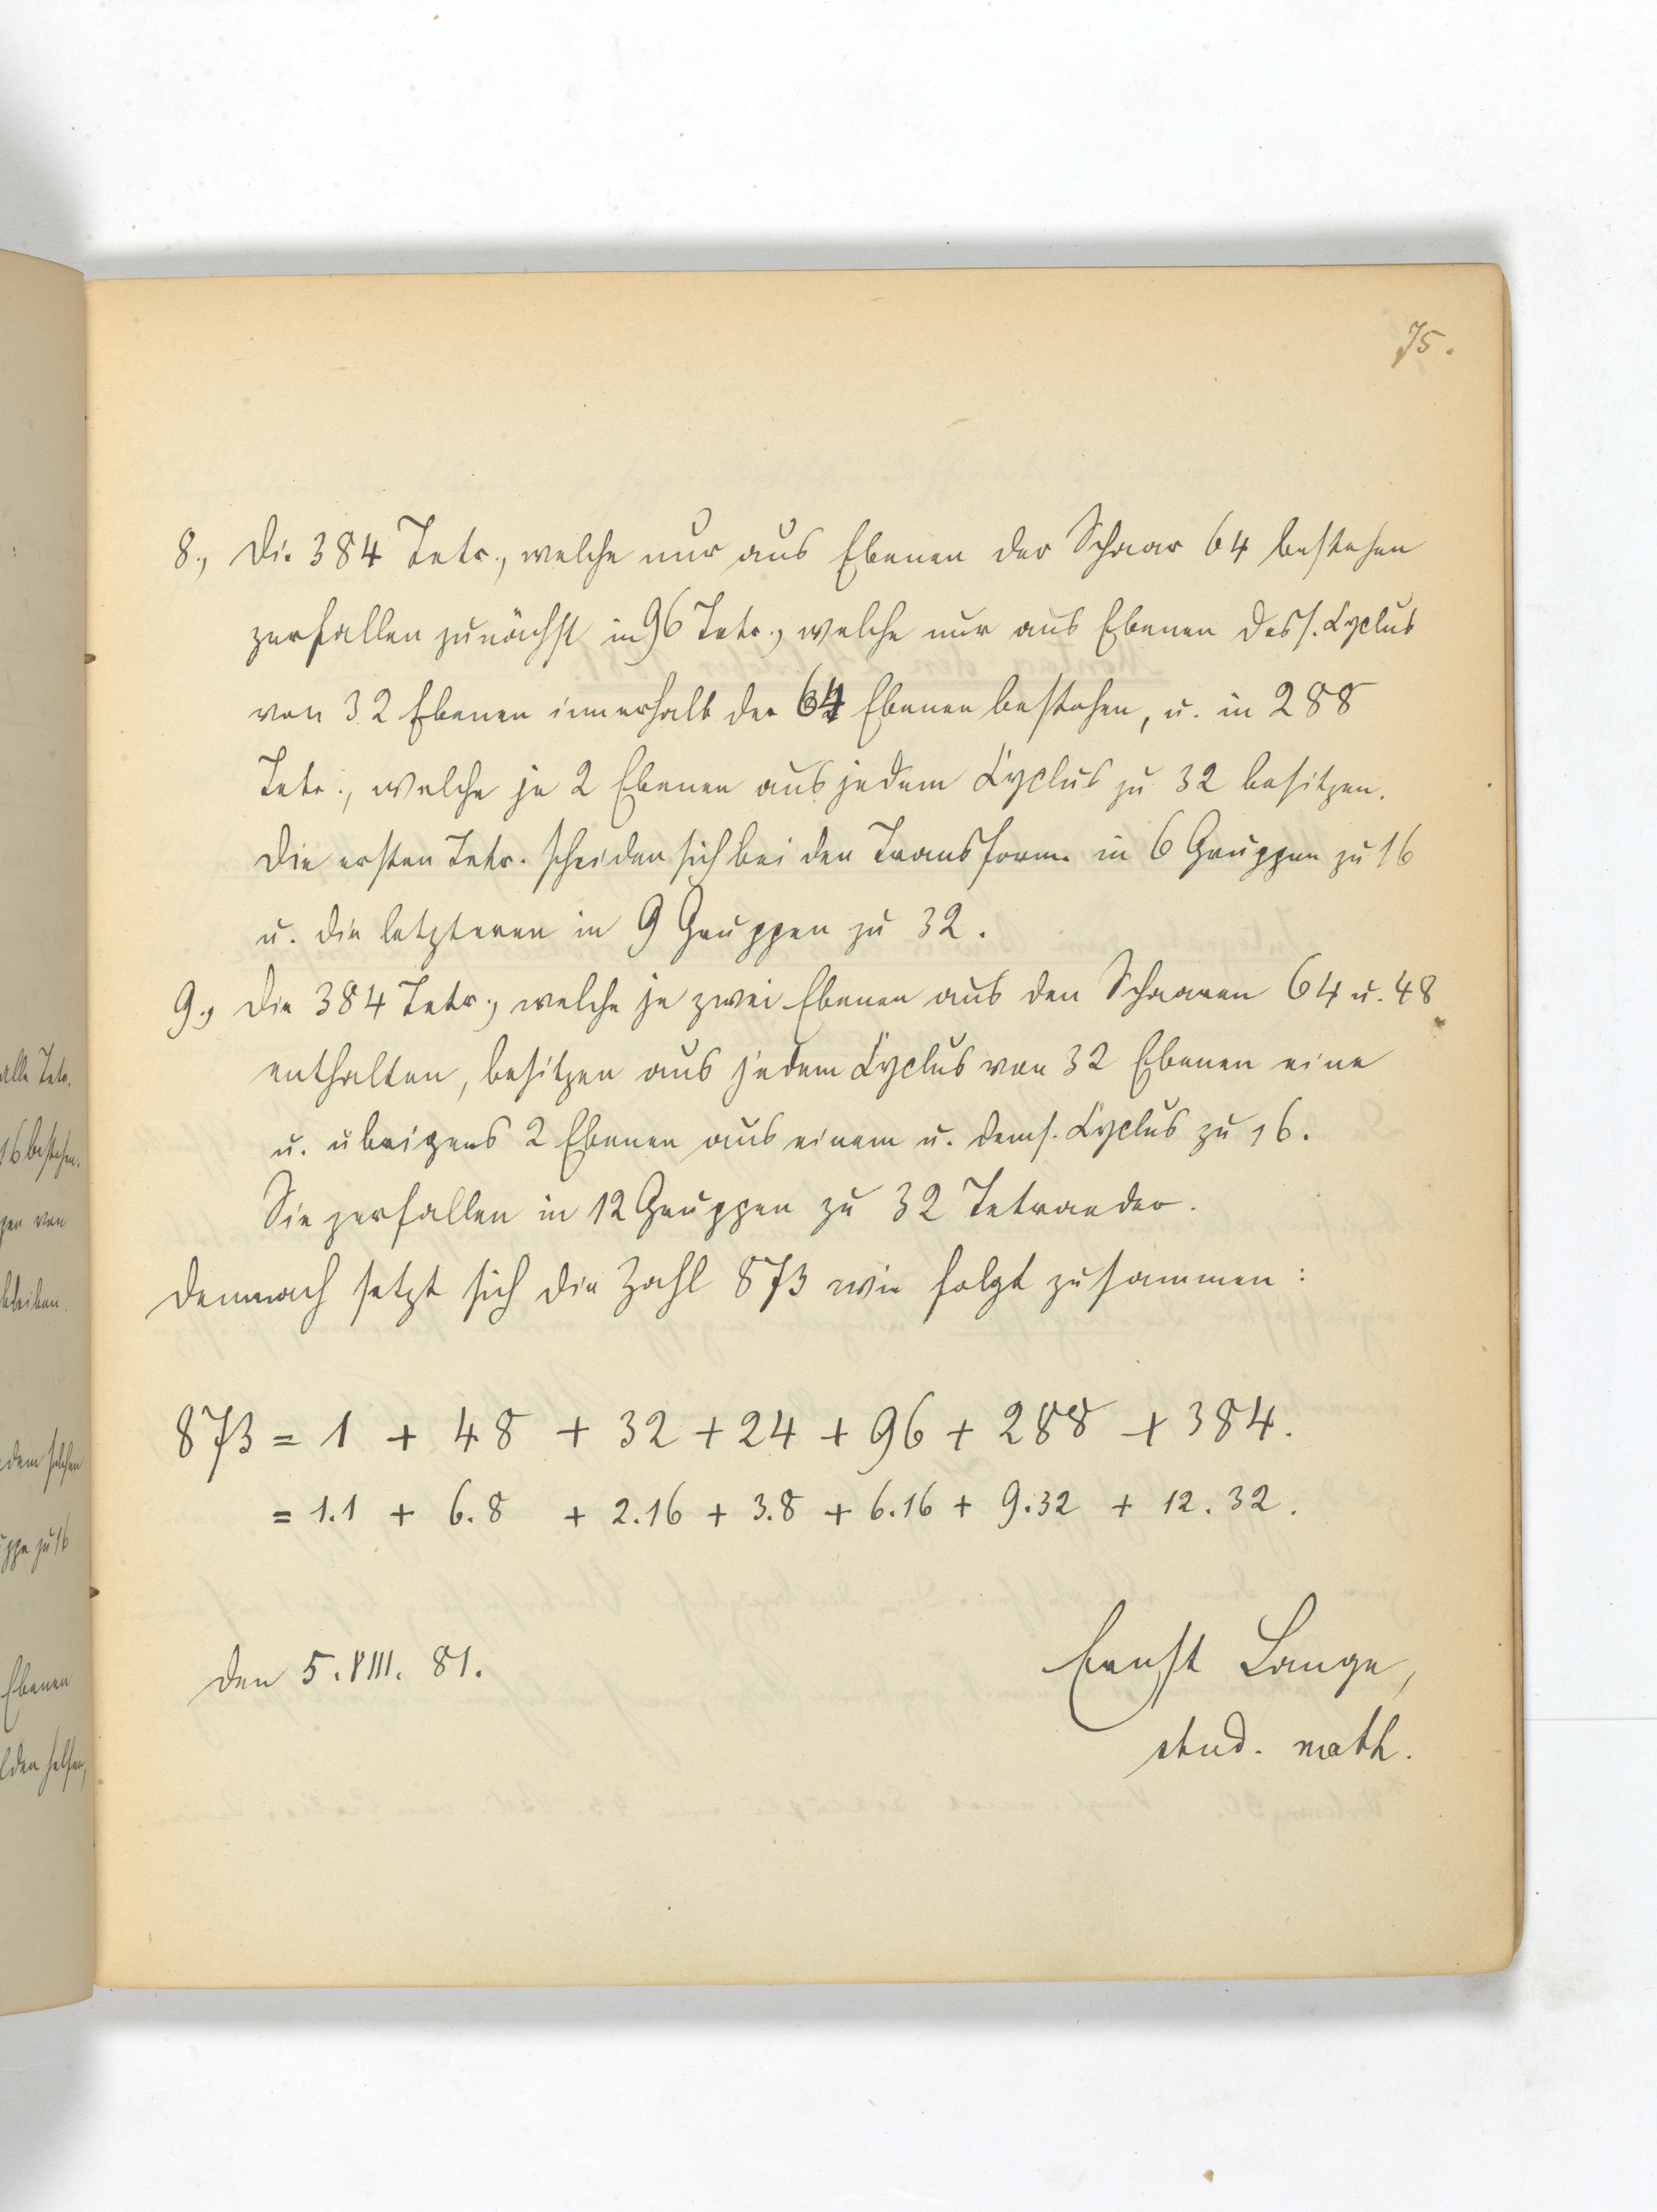 75.
8., Die 384 Tetr., welche nur aus Ebenen der Schaar 64 bestehen
zerfallen zunächst in 96 Tetr., welche nur aus Ebenen dess. Cyclus
von 32 Ebenen innerhalb der 64 Ebenen bestehen, u. in 288
Tetr., welche je 2 Ebenen aus jedem Cyclus zu 32 besitzen.
Die ersten Tetr. scheiden sich bei den Transform. in 6 Gruppen zu 16
u. die letzteren in 9 Gruppen zu 32.
9., Die 384 Tetr., welche je zwei Ebenen aus den Schaaren 64 u. 48
enthalten, besitzen aus jedem Cyclus von 32 Ebenen eine
u. übrigens 2 Ebenen aus einem u. dems. Cyclus zu 16.
Sie zerfallen in 12 Gruppen zu 32 Tetraeder.
Demnach setzt sich die Zahl 873 wie folgt zusammen:
873 = 1 + 48 + 32 + 24 + 96 + 288 + 384.
= 1.1 + 6.8 + 2.16 + 3.8 + 6.16 + 9.32 + 12.32.
Den 5. VIII. 81.
Ernst Lange,
stud. math.
alle Tetr.
16 bestehen.
gen von
bleiben.
dem solchen
uppe zu 16
Ebenen